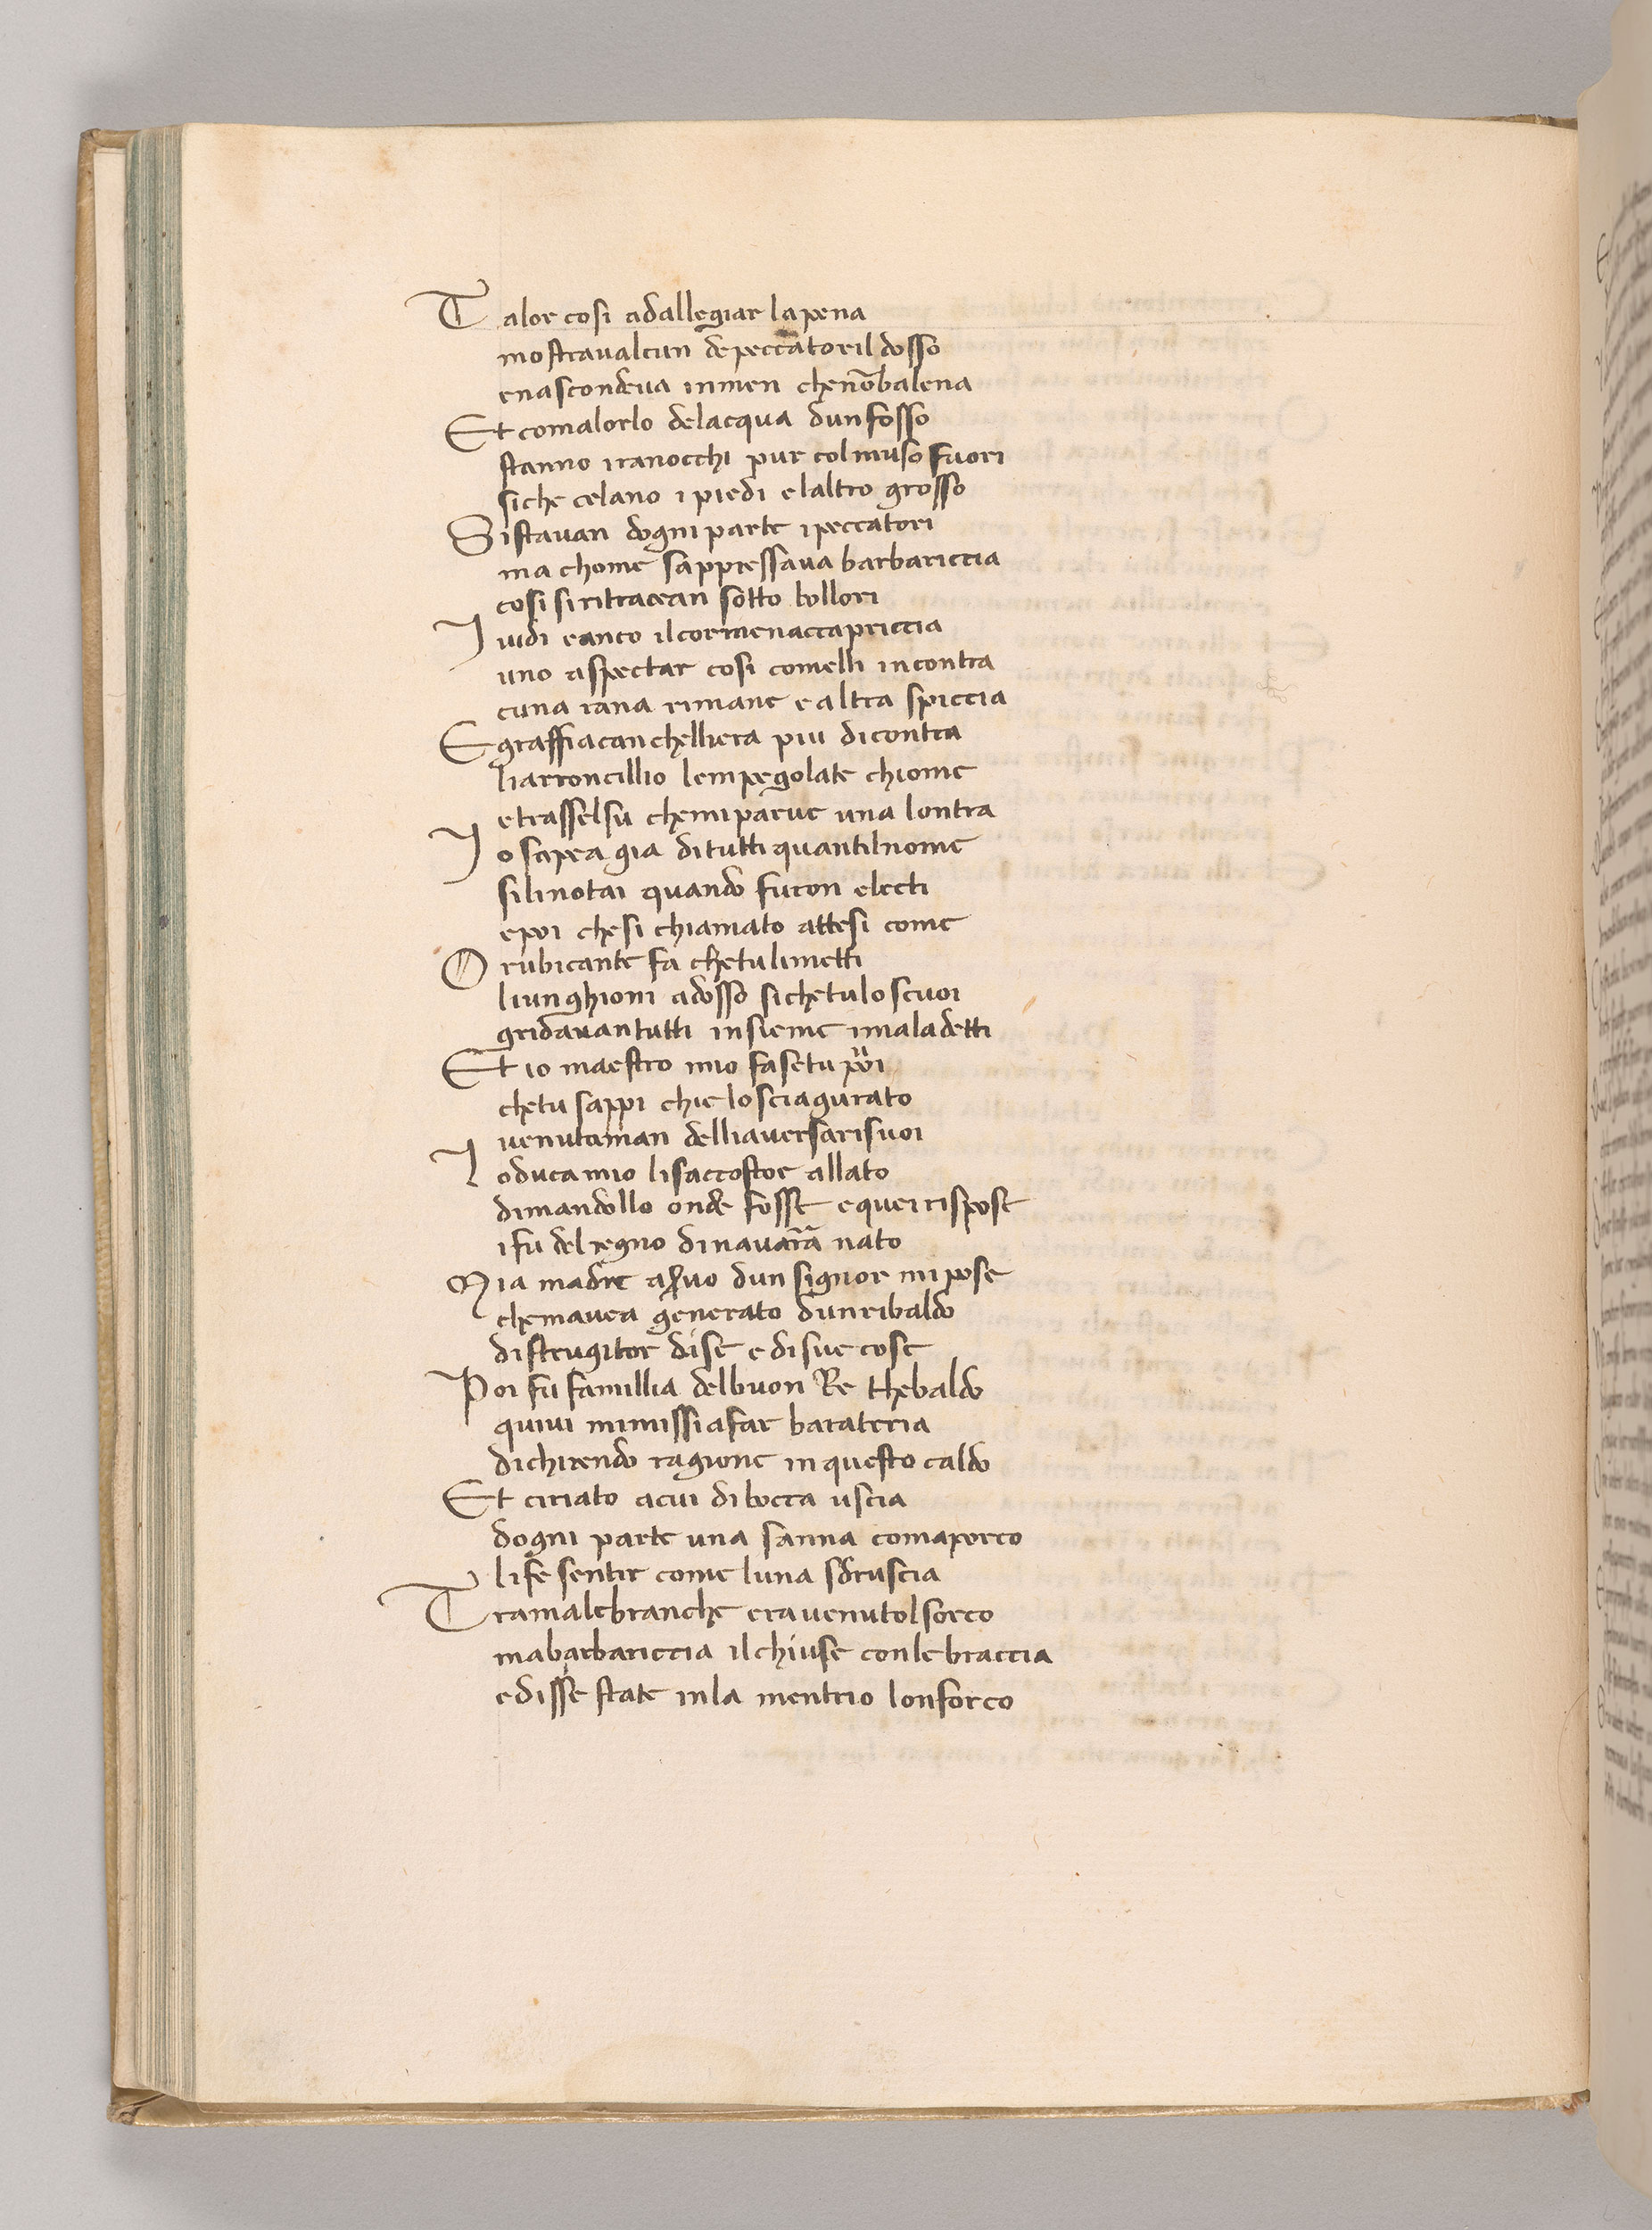 Talor cosi adallegiar lapena
mostraualcun depeccatoril dosso
enascondeua inmen chenōbalena
Et comalorlo delacqua dunfosso
stanno iranocchi pur colmuso fuori
siche celano i piedi elaltro grosso
Sistauan dogni parte ipeccatori
ma chome sappressaua barbariccia
cosi siritraean sotto bollori
I uidi eanco ilcormenaccapriccia
uno aspectar cosi comelli incontra
cuna rana rimane ealtra spiccia
Egraffiacanchelliera piu dicontra
liarroncillio lempegolate chiome
etrasselsu chemiparue una lontra
Io sapea gia ditutti quantilnome
silinotai quando furon electi
epoi chesi chiamato attesi come
O rubicante fa chetulimetti
liunghioni adosso sichetulo scuoi
gridauantutti insieme imaladetti
Et io maestro mio fasetu poi
chetu sappi chie losciagurato
uenutaman delliauersarisuoi
Ioducamio lisaccostoe allato
dimandollo onde fosse equeirispose
ifu delregno dinauarra nato
Mia madre aseruo dunsignor mipose
chemauea generato dunribaldo
distrugitor dise edisue cose
Poi fu famillia delbuon Re thebaldo
quiui mimissiafar barateria
dichirendo ragione inquesto caldo
Et ciriato acui dibocca uscia
dogni parte una sanna comaporco
life sentir come luna sdruscia
Tramalebranche erauenutolsorco
mabarbariccia ilchiuse conlebraccia
edisse state inla mentrio lonforco